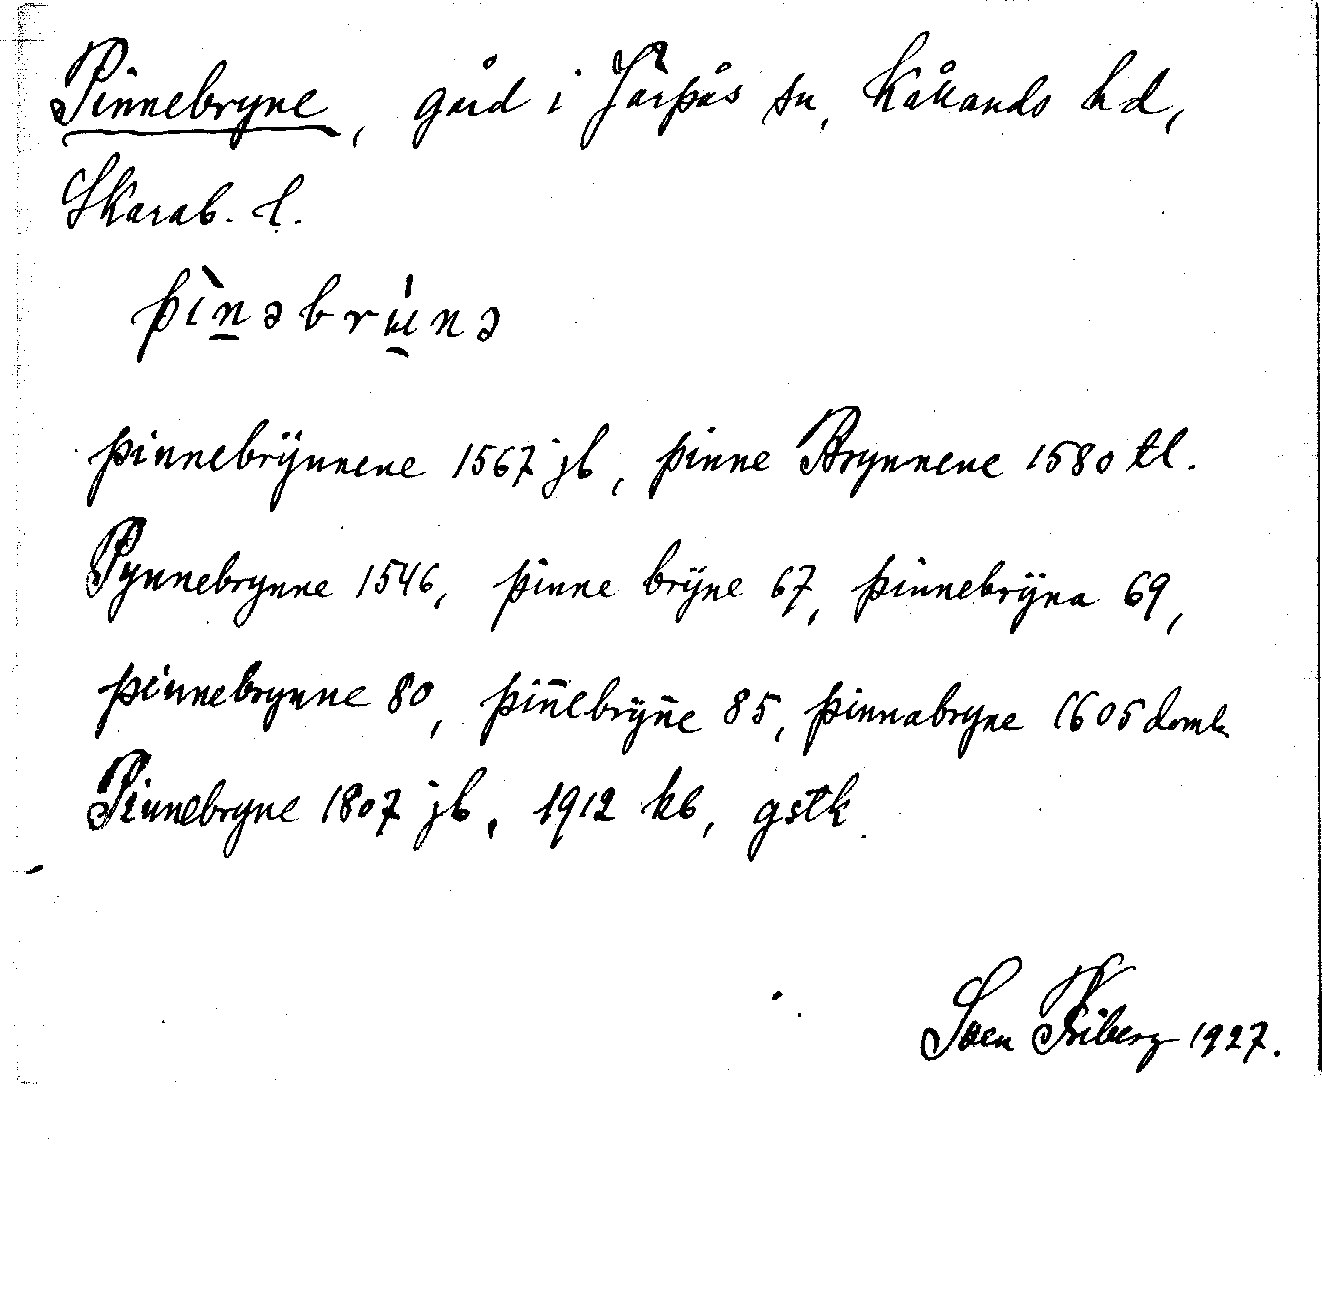 Pinnebryne, gård i Järpås sn, Kållands hd,
Skarab. l.
pìnəbrùnə
pinnebrÿnnene 1567 jb, pinne Brynnene 1580 tl.
Pynnebrynne 1546, pinne brÿne 67, pinnebrÿna 69,
pinnebrynne 80, pin̄ebrÿn̄e 85, pinnabryne 1605 domb
Pinnebryne 1807 jb, 1912 kb, gstk.
Sven Friberg 1927.